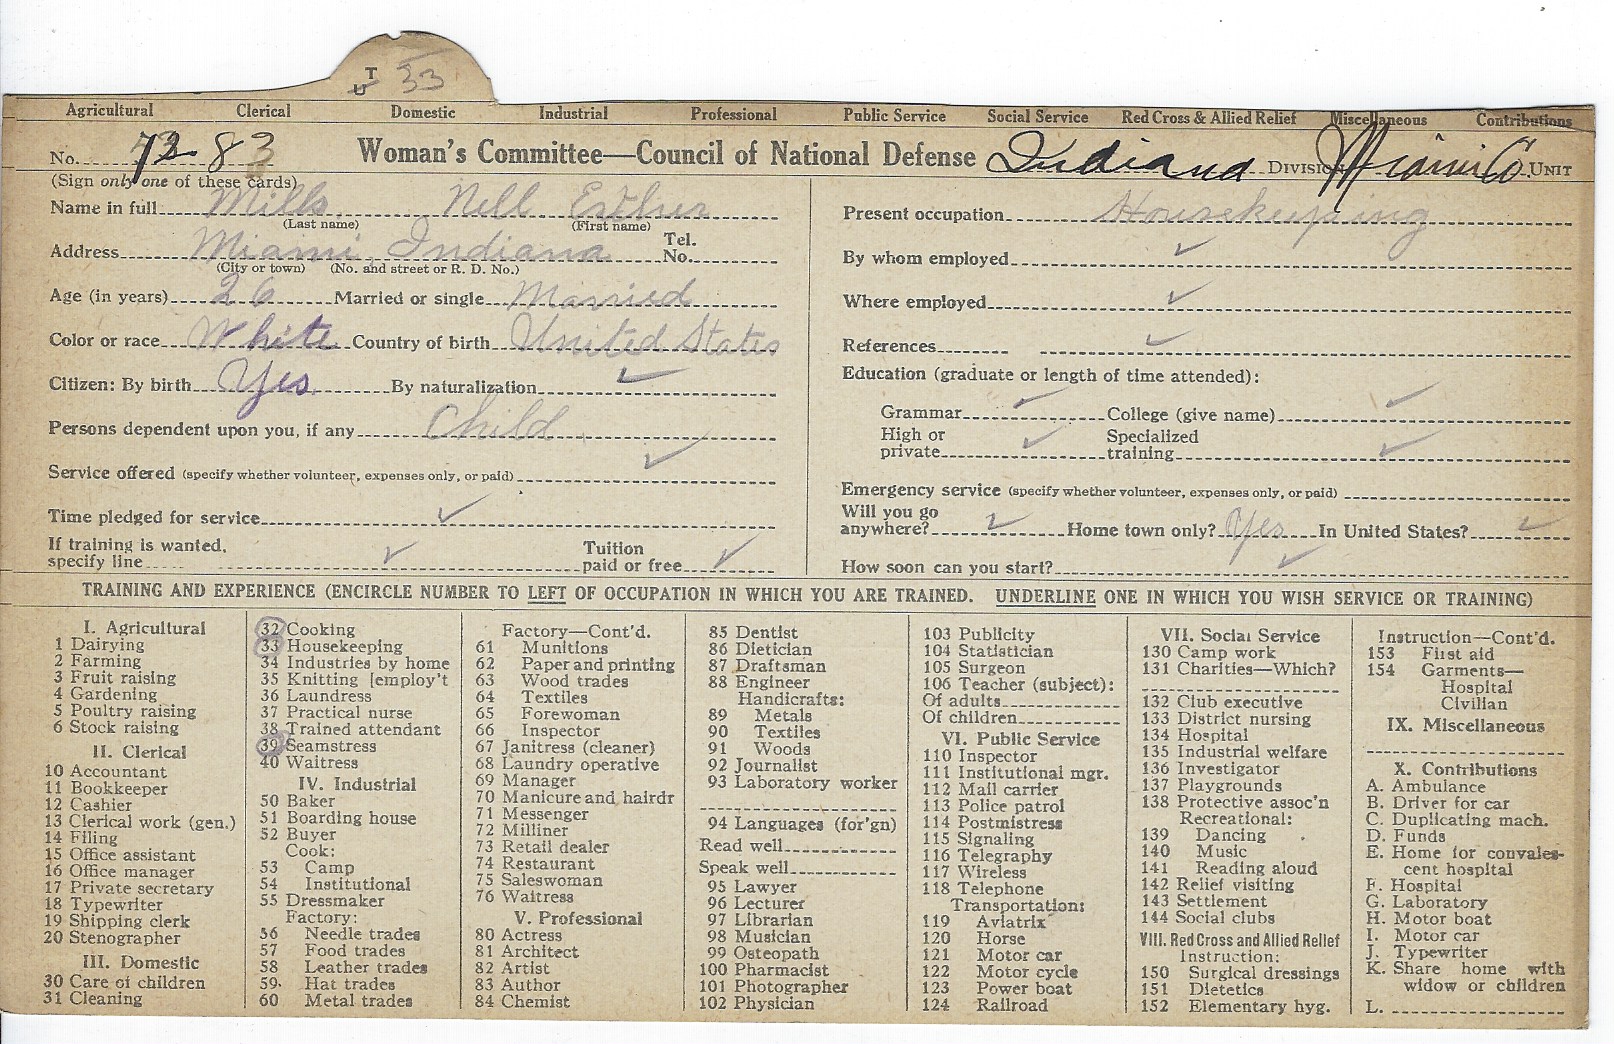 T
U 33
Agricultural Clerical Domestic Industrial Professional Public Service Social Service Red Cross & Allied Relief Miscellaneous Contributions
No. 7283 Woman's Committee—Council of National Defense Indiana DIVISION Miami Co. UNIT
(Sign only one of these cards)
Name in full Mills Nell Esther
(Last name) (First name)
Address Miami, Indiana Tel. No.
(City or town) (No. and street or R. D. No.)
Age (in years) 26 Married or single Married
Color or race White Country of birth United States
Citizen: By birth Yes. By naturalization ✓
Persons dependent upon you, if any Child
Service offered (specify whether volunteer, expenses only, or paid) ✓
Time pledged for service ✓
If training is wanted, specify line ✓ Tuition paid or free ✓
Present occupation Housekeeping
By whom employed ✓
Where employed ✓
References ✓
Education (graduate or length of time attended):
Grammar ✓ College (give name) ✓
High or private ✓ Specialized training ✓
Emergency service (specify whether volunteer, expenses only, or paid)
Will you go anywhere? ✓ Home town only? Yes In United States? ✓
How soon can you start? ✓
TRAINING AND EXPERIENCE (ENCIRCLE NUMBER TO LEFT OF OCCUPATION IN WHICH YOU ARE TRAINED. UNDERLINE ONE IN WHICH YOU WISH SERVICE OR TRAINING)
I. Agricultural
1 Dairying
2 Farming
3 Fruit raising
4 Gardening
5 Poultry raising
6 Stock raising
II. Clerical
10 Accountant
11 Bookkeeper
12 Cashier
13 Clerical work (gen.)
14 Filing
15 Office assistant
16 Office manager
17 Private secretary
18 Typewriter
19 Shipping clerk
20 Stenographer
III. Domestic
30 Care of children
31 Cleaning
32 Cooking
33 Housekeeping
34 Industries by home
35 Knitting [employ't
36 Laundress
37 Practical nurse
38 Trained attendant
39 Seamstress
40 Waitress
IV. Industrial
50 Baker
51 Boarding house
52 Buyer
Cook:
53 Camp
54 Institutional
55 Dressmaker
Factory:
56 Needle trades
57 Food trades
58 Leather trades
59 Hat trades
60 Metal trades
Factory—Cont'd.
61 Munitions
62 Paper and printing
63 Wood trades
64 Textiles
65 Forewoman
66 Inspector
67 Janitress (cleaner)
68 Laundry operative
69 Manager
70 Manicure and hairdr
71 Messenger
72 Milliner
73 Retail dealer
74 Restaurant
75 Saleswoman
76 Waitress
V. Professional
80 Actress
81 Architect
82 Artist
83 Author
84 Chemist
85 Dentist
86 Dietician
87 Draftsman
88 Engineer
Handicrafts:
89 Metals
90 Textiles
91 Woods
92 Journalist
93 Laboratory worker
94 Languages (for'gn)
Read well
Speak well
95 Lawyer
96 Lecturer
97 Librarian
98 Musician
99 Osteopath
100 Pharmacist
101 Photographer
102 Physician
103 Publicity
104 Statistician
105 Surgeon
106 Teacher (subject):
Of adults
Of children
VI. Public Service
110 Inspector
111 Institutional mgr.
112 Mail carrier
113 Police patrol
114 Postmistress
115 Signaling
116 Telegraphy
117 Wireless
118 Telephone
Transportation:
119 Aviatrix
120 Horse
121 Motor car
122 Motor cycle
123 Power boat
124 Railroad
VII. Social Service
130 Camp work
131 Charities—Which?
132 Club executive
133 District nursing
134 Hospital
135 Industrial welfare
136 Investigator
137 Playgrounds
138 Protective assoc'n
Recreational:
139 Dancing
140 Music
141 Reading aloud
142 Relief visiting
143 Settlement
144 Social clubs
VIII. Red Cross and Allied Relief
Instruction:
150 Surgical dressings
151 Dietetics
152 Elementary hyg.
Instruction—Cont'd.
153 First aid
154 Garments—
Hospital
Civilian
IX. Miscellaneous
X. Contributions
A. Ambulance
B. Driver for car
C. Duplicating mach.
D. Funds
E. Home for convales-
cent hospital
F. Hospital
G. Laboratory
H. Motor boat
I. Motor car
J. Typewriter
K. Share home with
widow or children
L.